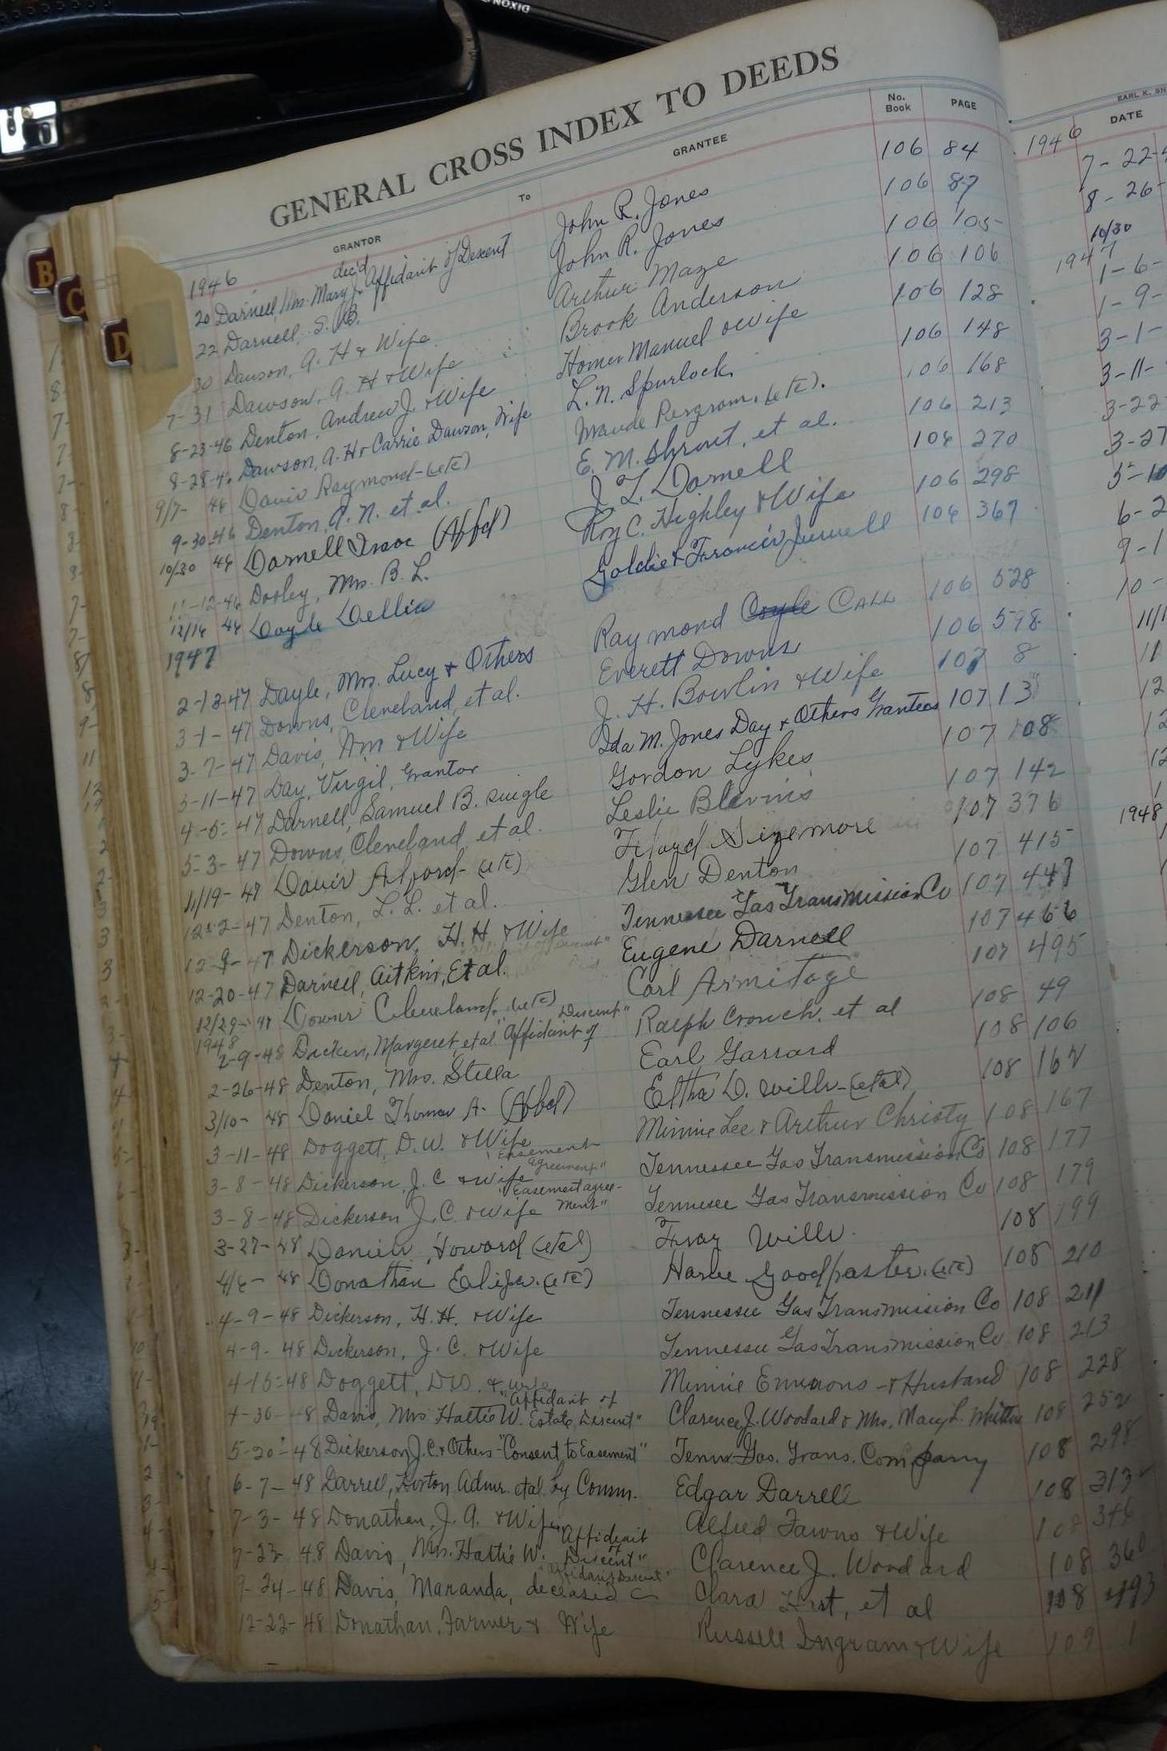 DIXON
GENERAL CROSS INDEX TO DEEDS
GRANTOR To GRANTEE No. Book PAGE
1946
20 Darnell, Mrs. Mary J. dec'd Affidavit of Descent John R. Jones 106 84
22 Darnell, S. B. John R. Jones 106 87
30 Dawson, A. H & Wife Arthur Maze 106 105
7-31 Dawson, A. H & Wife Brook Anderson 106 106
8-23-46 Denton, Andrew J. & Wife Homer Manuel & Wife 106 128
8-28-46 Dawson, A. H & Carrie Dawson, Wife L. N. Spurlock 106 148
9/7- 46 Davis Raymond-(etc) Maude Pergram, (etc). 106 168
9-30-46 Denton, A. N. et al. E. M. Shrout, et al. 106 213
10/30 46 Darnell Isaac (Affd) J. L. Darnell 106 270
11-12-46 Dooley, Mrs. B. L. Roy C. Highley & Wife 106 298
12/16 46 Doyle Dellia Goldie & Francis Jewell 106 367
1947
2-13-47 Dayle, Mrs. Lucy & Others Raymond Coyle CALL 106 528
3-1-47 Downs, Cleveland, et al. Everett Downs 106 598
3-7-47 Davis, Wm & Wife J. H. Bowlin & Wife 107 8
3-11-47 Day, Virgil, Grantor Ida M. Jones Day & Others Grantees 107 13
4-5-47 Darnell, Samuel B. single Gordon Lykes 107 108
5-3-47 Downs, Cleveland, et al. Leslie Blevins 107 142
11/19-47 Davis Alford-(etc) Floyd Sizemore 107 376
12-2-47 Denton, L. L. et al. Glen Denton 107 415
12-9-47 Dickerson, H. H. & Wife Tennessee Gas Transmission Co 107 447
12-20-47 Darnell, Aitkin, Et al. Eugene Darnell 107 466
12/29-47 Downs Cleveland, (etc) Carl Armitage 107 495
1948
2-9-48 Dicken, Margeret et al "Affidavit of Descent" Ralph Crouch, et al 108 49
2-26-48 Denton, Mrs. Stella Earl Garrard 108 106
3/10-48 Daniel Thomas A. (Affd) Eltha D. Wills-(etal) 108 162
3-11-48 Doggett, D. W. & Wife Minnie Lee & Arthur Christy 108 167
3-8-48 Dickerson, J. C & Wife "Easement Agreement" Tennessee Gas Transmission Co 108 177
3-8-48 Dickerson J. C. & Wife "Easement agreement" Tennessee Gas Transmission Co 108 179
3-27-48 Daniels, Howard (etal) Wills 108 199
4/6-48 Donathan Elijah (etc) Goodpaster. (etc) 108 210
4-9-48 Dickerson, H. H. & Wife Tennessee Gas Transmission Co 108 211
4-9-48 Dickerson, J. C. & Wife Tennessee Gas Transmission Co 108 213
4-15-48 Doggett, D. W. & wife Minnie Emmons & Husband 108 228
4-30-48 Davis, Mrs Hattie W. "Affidavit of Estate Descent" Clarence J. Woodard & Mrs. Mary L. 108 252
5-20-48 Dickerson J. C. & Others "Consent to Easement" Tenn. Gas. Trans. Company 108 298
6-7-48 Darrell, Admr. etal by Comm. Edgar Darrell 108 313
7-3-48 Donathan, J. A. & Wife Alfred Fawns & Wife 108 346
7-23-48 Davis, Mrs. Hattie W. "Affidavit of Descent" Clarence J. Woodard 108 360
9-24-48 Davis, Maranda, deceased "Affidavit Descent" Clara et al 108 493
12-22-48 Donathan, Farmer & Wife Russell Ingram & Wife 109 1
B
C
D
EARL K.
DATE
1946
7-22-
8-26-
10/30
1947
1-6-
1-9-
3-1-
3-11-
3-22-
3-27
5-10
6-2
9-1
10-
11/1
11
12
12
12
1948